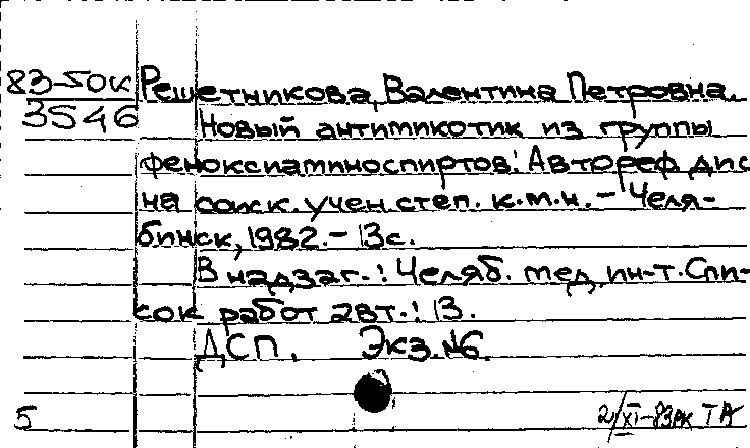 83-50к
3546
Решетникова, Валентина Петровна.
Новый антимикотик из группы
феноксиаминоспиртов: Автореф. дис
на соиск. учен. степ. к.м.н. – Челя-
бинск, 1982. – 13с.
В надзаг.: Челяб. мед. ин-т. Спи-
сок работ авт.: 13.
ДСП. Экз. №6.
5